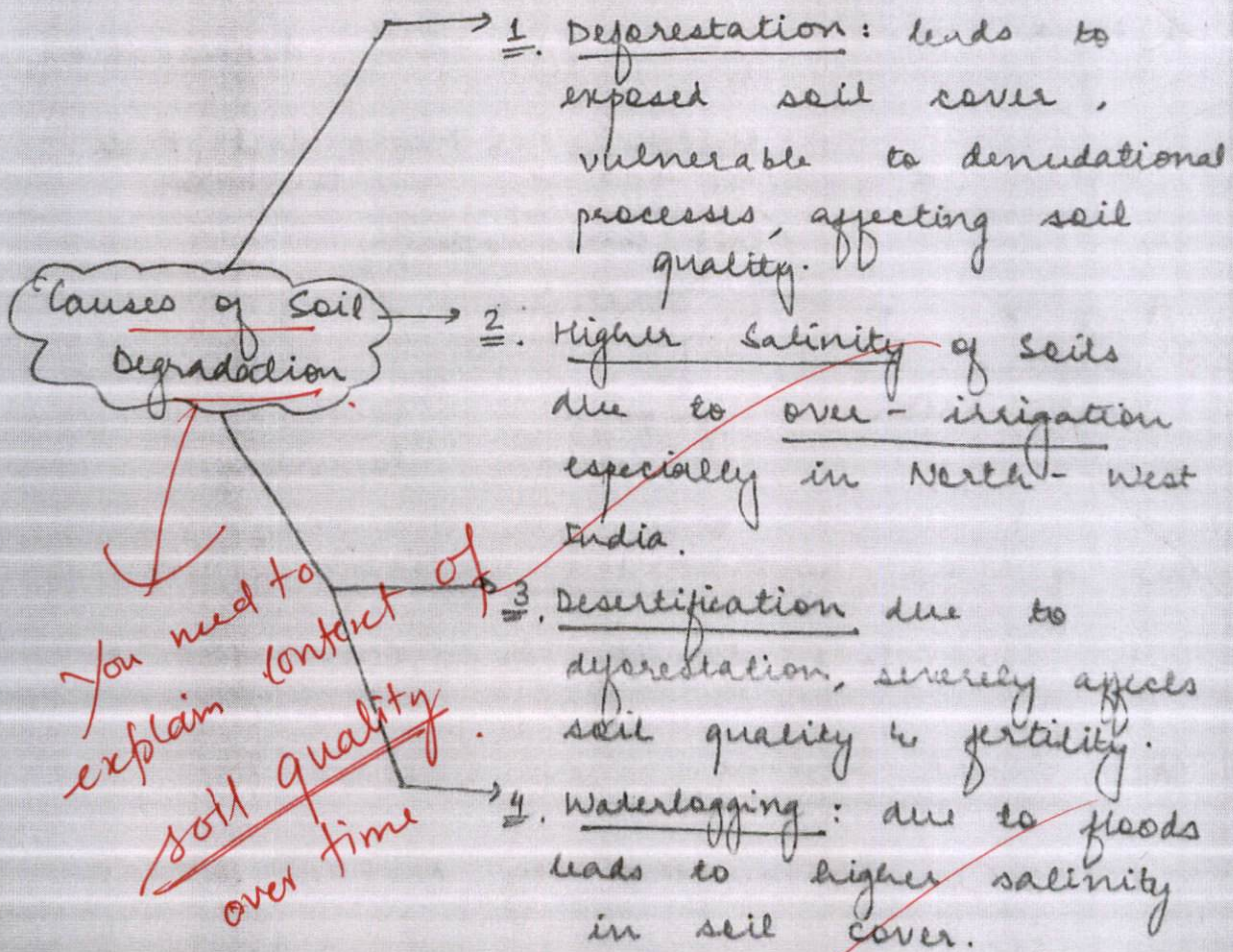 1. Deforestation : leads to
exposed soil cover,
vulnerable to denudational
processes, affecting soil
quality.
Causes of Soil
Degradation
2. Higher Salinity of Soils
due to over-irrigation
especially in North-West
India.
3. Desertification due to
deforestation, severely affects
soil quality & fertility.
4. Waterlogging : due to floods
leads to higher salinity
in soil cover.
You need to
explain context of
soil quality.
over time